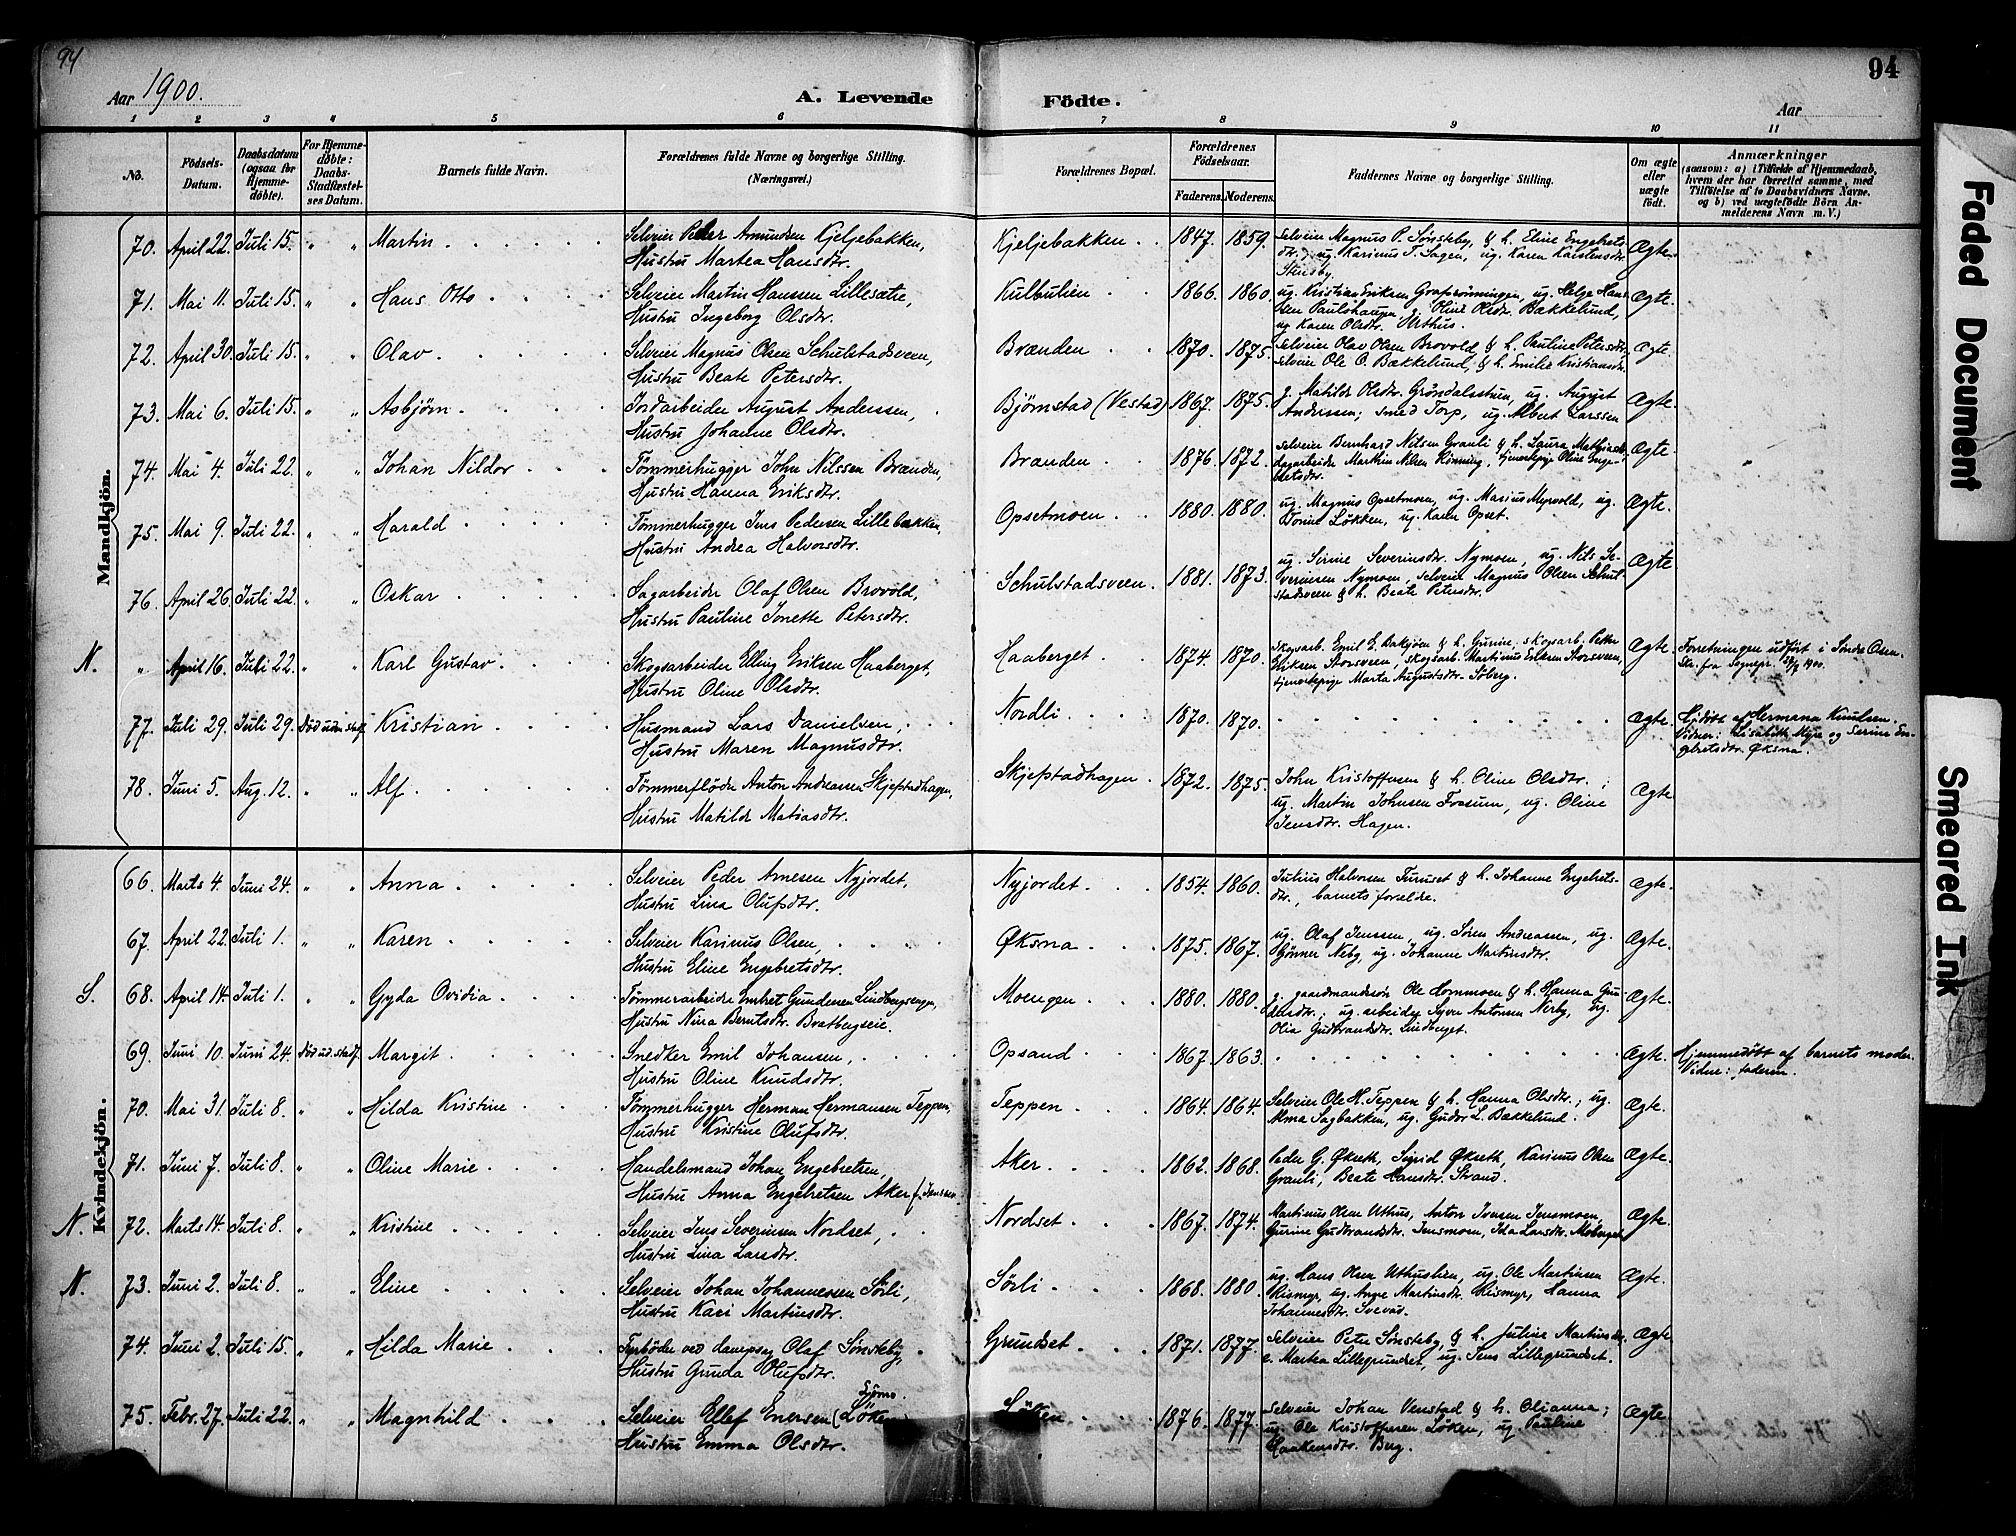 94
Aar 1900.
A. Levende Födte.
94
Aar
1 2 3 4 5 6 7 8 9 10 11
No.
Födsels-Datum.
Daabsdatum (ogsaa for Hjemme-döbte).
For Hjemme-döbte: Daabs-Stadfæstel-ses Datum.
Barnets fulde Navn.
Forældrenes fulde Navne og borgerlige Stilling. (Næringsvei.)
Forældrenes Bopæl.
Forældrenes Födselsaar.
Faderens. Moderens.
Faddernes Navne og borgerlige Stilling.
Om ægte eller uægte födt.
Anmærkninger
(saasom: a) i Tilfælde af Hjemmedaab, hvem der har forrettet samme, med Tilföielse af to Daabsvidners Navne, og b) ved uægtefödte Börn Anmelderens Navn m. V.)
Mandkjön.
70. April 22. Juli 15. " " Martin Selveier Peder Amundsen Kjeljebakken, Hustru Martea Hansdtr. Kjeljebakken 1847. 1859. Selveier Magnus P. Sønsteby, & h. Eline Engebrets-dtr., ug. Karinus T. Sagen, ug. Karen Karstensdtr. Stensby. Ægte.
71. Mai 11. Juli 15. " " Hans Otto Selveier Martin Hanssen Lillesætre, Hustru Ingeborg Olsdtr. Kulbulien 1866. 1860. ug. Kristian Eriksen Grafsrønningen, ug. Helge Hansen Paulshaugen, g. Oline Olsdtr. Bækkelund, ug Karen Olsdtr. Uthus. Ægte.
72. April 30. Juli 15. " " Olav Selveier Magnus Olsen Schulstadsveen, Hustru Beate Petersdtr. Brænden 1870. 1875. Selveier Olav Olsen Brovold & h. Pauline Petersdtr; selveier Ole O. Bækkelund, & h. Emilie Kristiansdtr. Ægte.
73. Mai 6. Juli 15. " " Asbjørn Jordarbeider August Anderssen, Hustru Johanne Olsdtr. Bjørnstad (Vestad) 1867. 1875. g. Matilde Olsdtr. Grøndalsstuen, ug. August Anderssen; smed Torp, ug. Albert Larssen Ægte.
74. Mai 4. Juli 22. " " Johan Nildor Tømmerhugger John Nilssen Brænden, Hustru Hanna Eriksdtr. Brænden 1876. 1872. Selveier Bernhard Nilsen Granli & h. Laura dagarbeider Martin Nilsen Rønning, tjenestepige Oline Enge-bretsdtr. Ægte.
75. Mai 9. Juli 22. " " Harald Tømmerhugger Jens Pedersen Lillebækken, Hustru Andrea Halvorsdtr. Opsetmoen 1880. 1880. ug. Magnus Opsetmoen, ug. Marius Myrvold, ug. Løkken, ug. Karen Opset. Ægte.
76. April 26. Juli 22. " " Oskar Sagarbeider Olaf Olsen Brovold, Hustru Pauline Jonette Petersdtr. Schulstadsveen. 1881. 1873. ug. Sirine Severinsdtr. Nymoen, ug. Nils Se-verinsen Nymoen, Selveier Magnus Olsen Schul-stadsveen & h. Beate Petersdtr. Ægte
N. " April 16. Juli 22. " " Karl Gustav Skogsarbeider Elling Eriksen Haaberget, Hustru Oline Olsdtr. Haaberget 1874. 1870. Skogsarb. Emil E. Bakjøen & h. Gurine. skogsarb. Petter Eriksen Storsveen, skogsarb. Martinus Eriksen Storsveen, tjenestepige Marta Augustsdtr. Søberg. Ægte. Forretningen udført i Søndre Osen. Skr. fra Sognepr. 1900.
77. Juli 29. Juli 29. Død uden stadf. Kristian Husmand Lars Danielsen, Hustru Maren Magnusdtr. Nordli 1870. 1870. Ægte. Hjdøbt af Hermana Knudsen. Vidner: Lisabeth Myre og Serine Engebretsdtr. Øksna.
78. Juni 5. Aug. 12. " " Alf Tømmerfløder Anton Andreassen Skjefstadhagen, Hustru Matilde Matiasdtr. Skjefstadhagen 1872. 1875. John Kristoffersen & h. Oline Olsdtr.; ug. Martin Johnsen Frasum, ug. Oline Jensdtr. Hagen. Ægte
Kvindekjön.
66. Marts 4. Juni 24. " " Anna Selveier Peder Arnesen Nyjordet, Hustru Lina Olufsdtr. Nyjordet 1854. 1860. Julius Halvorsen Turuset & h. Johanne Engebrets-dtr., barnets forældre. Ægte.
67. April 22. Juli 1. " " Karen Selveier Karinus Olsen Hustru Eline Engebretsdtr. Øksna 1875. 1867. ug. Olaf Jenssen, ug. Søren Andreassen, ug. Gønner Neby ug. Johanne Martinsdtr. Ægte.
S. 68. April 14. Juli 1. " " Gyda Ovidia Tømmerarbeider Embret Gundersen Lindbergsengen, Hustru Nina Berntsdtr. Bratbergseie. Moengen 1880. 1880. g. gaardmandssøn Ole Hornmoen & h. Hanna Gun-dersdtr.; ug. arbeider Syver Antonsen Nerby, ug. Olia Gudbrandsdtr. Lindberget. Ægte.
69. Juni 10. Juni 24. Død ud. stadf. Margit Snedker Emil Johansen, Hustru Oline Knudsdtr. Opsand 1867. 1863. Ægte. Hjemmedøbt af barnets moder. Vidne: faderen.
70. Mai 31. Juli 8. " " Hilda Kristine Tømmerhugger Herman Hermansen Teppen, Hustru Kristine Olufsdtr. Teppen 1864. 1864. Selveier Ole H. Teppen & h. Hanna Olsdtr.; ug. Alma Sagbakken, ug. Gudor L. Bækkelund. Ægte.
71. Juni 7. Juli 8. " " Oline Marie Handelsmand Johan Engebretsen, Hustru Anna Engebretsen Aker f. Jenssen Aker 1862. 1868. Peder G. Økseth, Sigrid Økseth, Karinus Olsen Granli, Beate Hansdtr. Strand. Ægte.
N. 72. Marts 14. Juli 8. " " Kristine Selveier Jens Severinsen Nordset, Hustru Lina Larsdtr. Nordset 1867. 1874. Martinus Olsen Uthus, Anton Iversen Jensmoen, Gurine Gudbrandsdtr. Jensmoen, Ida Larsdtr. Moberget Ægte.
N. 73. Juni 2. Juli 8. " " Eline Selveier Johan Johannessen Sörli, Hustru Kari Martinsdtr. Sörli 1868. 1880. ug. Hans Olsen Uthuslien, ug. Ole Martinsen Rismyr, ug. Martinsdtr. Rismyr, Hanna Johannesdtr. Ægte.
74. Juni 2. Juli 15. " " Hilda Marie Fyrbøder ved dampsag Olaf Sønsteby, Hustru Gunda Olufsdtr. Grundset 1871. 1877. Selveier Peter Sønsteby, & h. Juline Martinsdtr, e. Martea Lillegrundset, ug. Jens Lillegrundset. Ægte
75. Febr. 27. Juli 22. " " Magnhild Selveier Ellef Enersen (Løken) Hustru Emma Olsdtr. 1876. 1877. Selveier Johan Venstad & h. Olianna; ug. Ole Kristoffersen Løken, ug. Pauline Haakensdtr. Berg. Ægte.
Faded Document
Smeared Ink